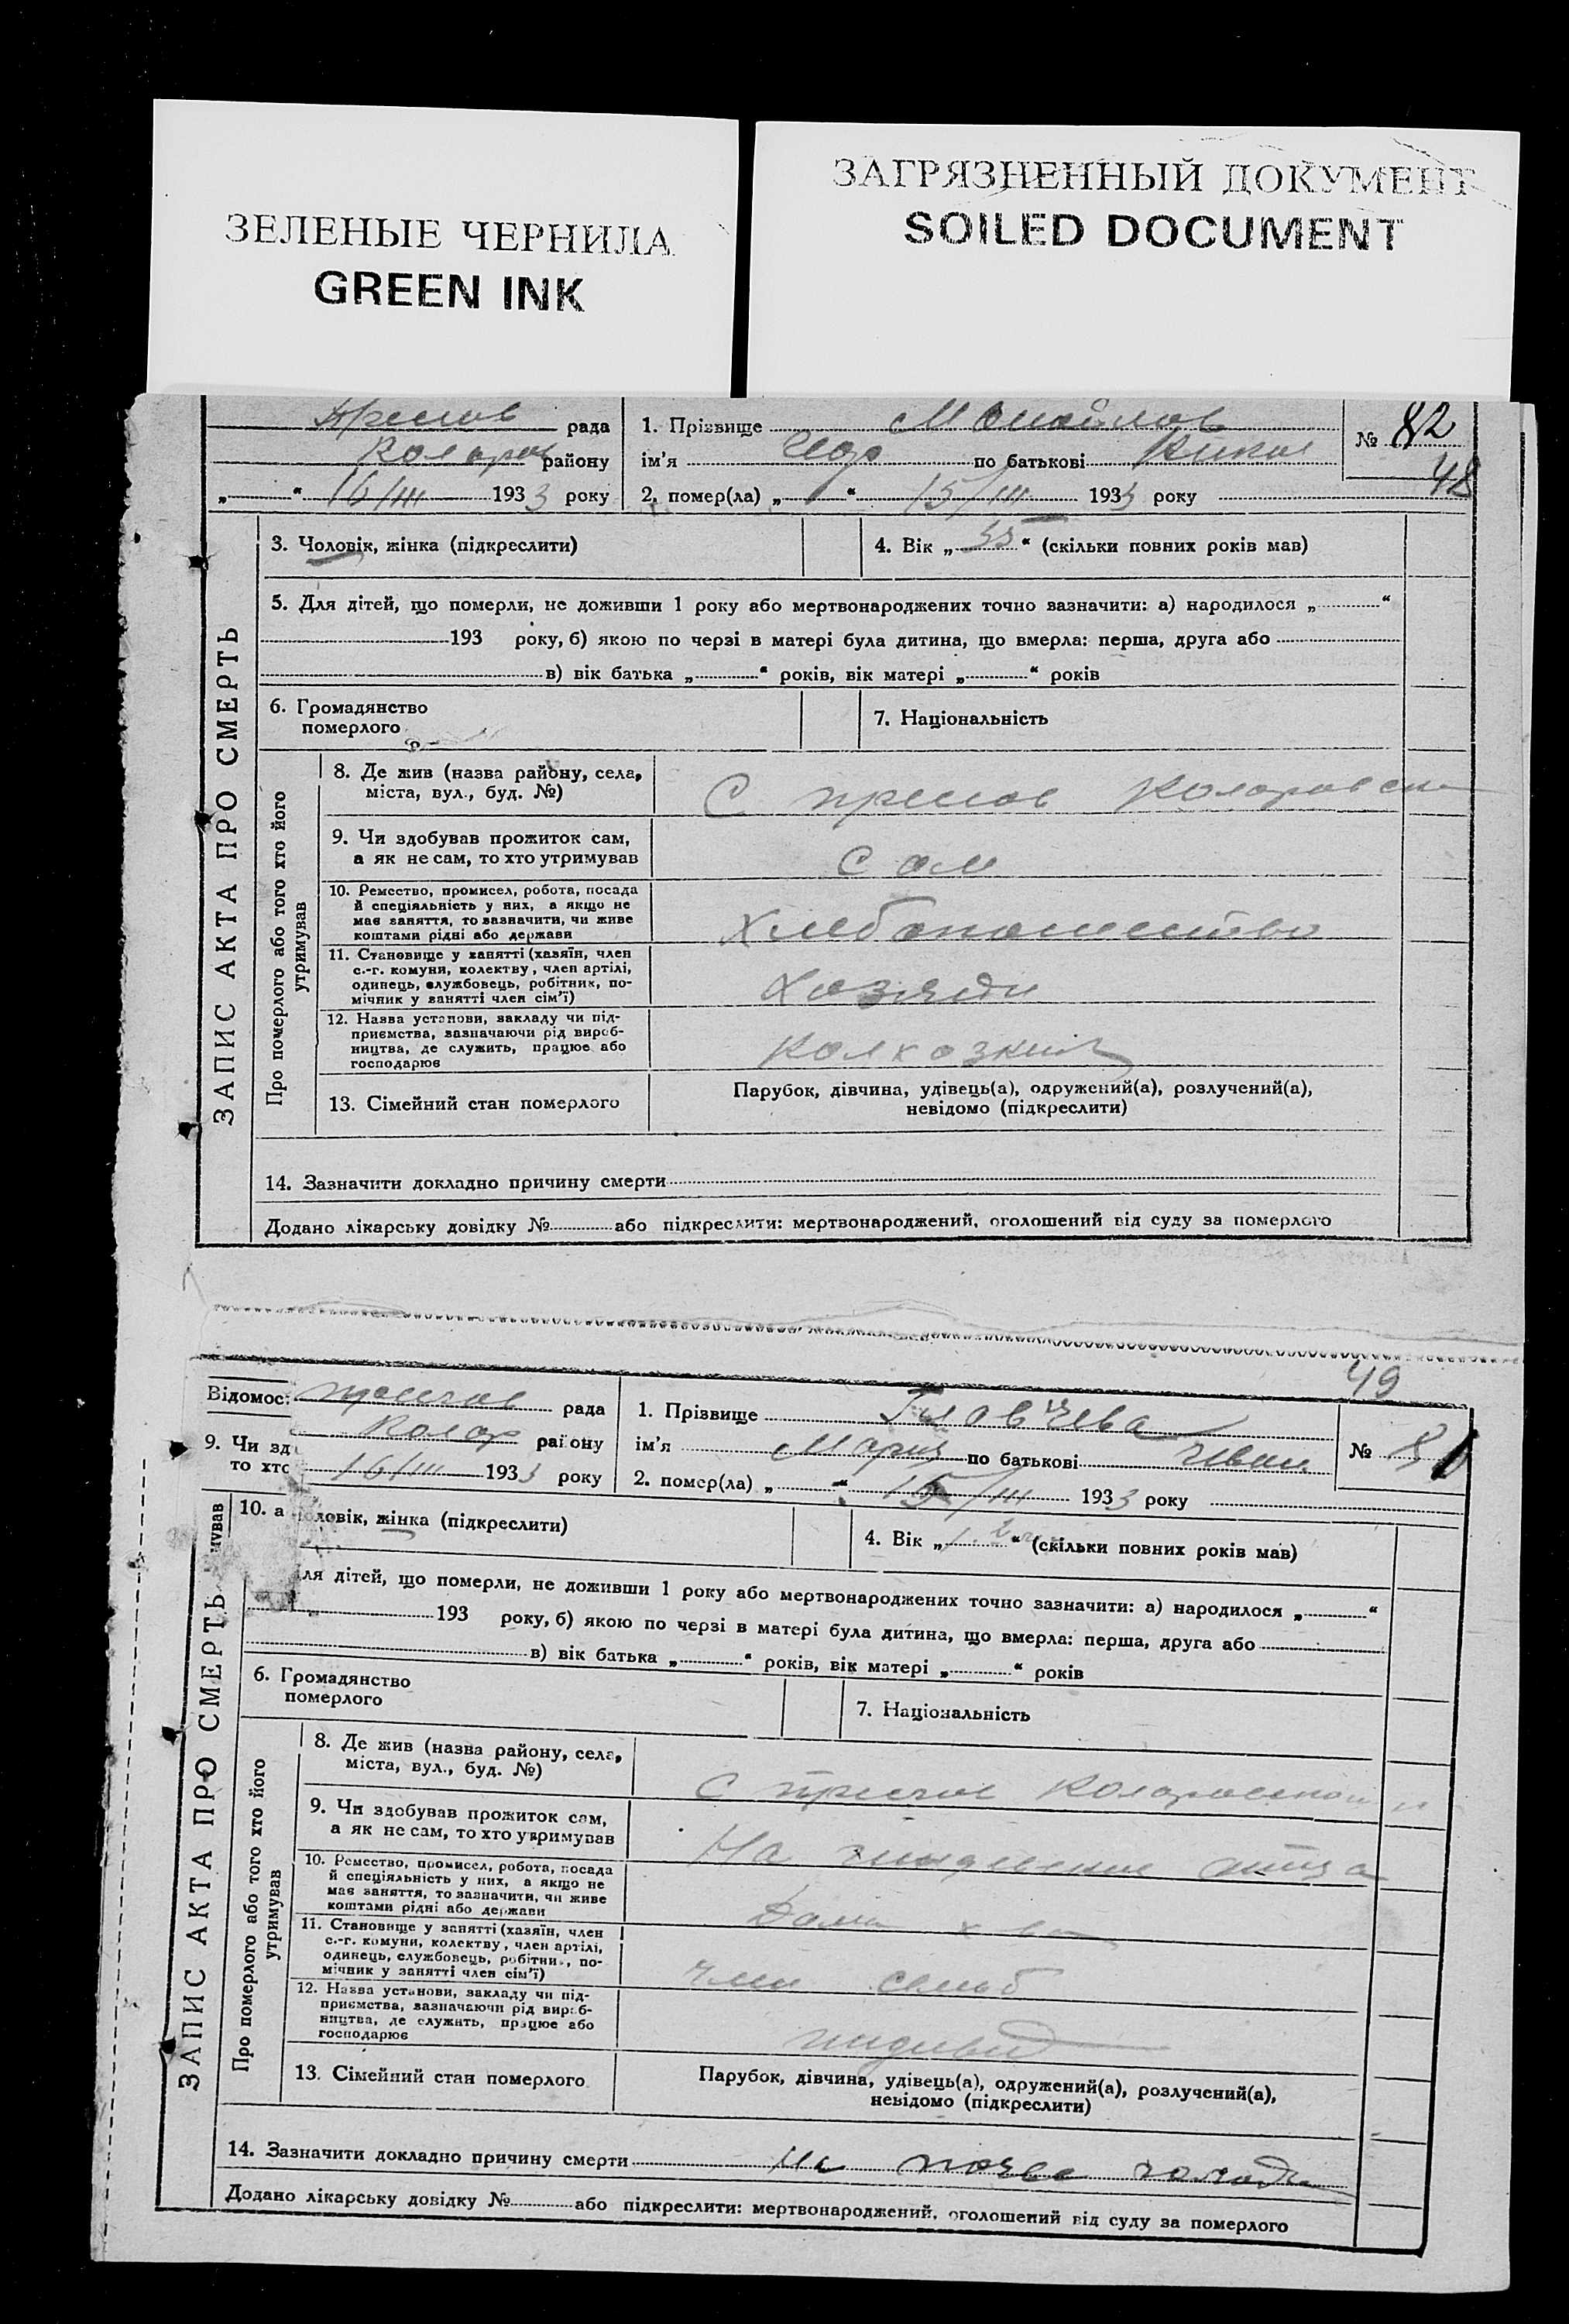 ЗЕЛЕНЫЕ ЧЕРНИЛА
GREEN INK
ЗАГРЯЗНЕННЫЙ ДОКУМЕНТ
SOILED DOCUMENT
рада
Колар району
„ “ 16/III 1933 року
1. Прізвище Монойлов
ім’я по батькові Никол
2. помер(ла) „ “ 15/III 1933 року
№ 82
48
ЗАПИС АКТА ПРО СМЕРТЬ
3. Чоловік, жінка (підкреслити)
4. Вік „ 55 “ (скільки повних років мав)
5. Для дітей, що померли, не доживши 1 року або мертвонароджених точно зазначити: а) народилося „ “
193 року, б) якою по черзі в матері була дитина, що вмерла: перша, друга або
в) вік батька „ “ років, вік матері „ “ років
6. Громадянство
померлого
7. Національність
Про померлого або того хто його
утримував
8. Де жив (назва району, села,
міста, вул., буд. №)
С Преслов
9. Чи здобував прожиток сам,
а як не сам, то хто утримував
Сам
10. Ремество, промисел, робота, посада
й спеціяльність у них, а якщо не
має заняття, то зазначити, чи живе
коштами рідні або держави
11. Становище у занятті (хазяїн, член
с.-г. комуни, колективу, член артілі,
одинець, службовець, робітник, по-
мічник у занятті член сім’ї)
12. Назва установи, закладу чи під-
приємства, зазначаючи рід вироб-
ництва, де служить, працює або
господарює
13. Сімейний стан померлого
Парубок, дівчина, удівець(а), одружений(а), розлучений(а),
невідомо (підкреслити)
14. Зазначити докладно причину смерти
Додано лікарську довідку № або підкреслити: мертвонароджений, оголошений від суду за померлого
49
Відомос
рада
Колар району
16/III 1933 року
9. Чи зд
то хто
1. Прізвище Главчева
ім’я Мария по батькові Иван
2. помер(ла) „ “ 15/III 1933 року
№
мував
10. а
оловік, жінка (підкреслити)
4. Вік „ “ (скільки повних років мав)
ля дітей, що померли, не доживши 1 року або мертвонароджених точно зазначити: а) народилося „ “
193 року, б) якою по черзі в матері була дитина, що вмерла: перша, друга або
в) вік батька „ “ років, вік матері „ “ років
ЗАПИС АКТА ПРО СМЕРТЬ
6. Громадянство
померлого
7. Національність
Про померлого або того хто його
утримував
8. Де жив (назва району, села,
міста, вул., буд. №)
С Преслов
9. Чи здобував прожиток сам,
а як не сам, то хто утримував
На иждевение отца
10. Ремество, промисел, робота, посада
й спеціяльність у них, а якщо не
має заняття, то зазначити, чи живе
коштами рідні або держави
11. Становище у занятті (хазяїн, член
с.-г. комуни, колективу, член артілі,
одинець, службовець, робітник, по-
мічник у занятті член сім’ї)
12. Назва установи, закладу чи під-
приємства, зазначаючи рід вироб-
ництва, де служить, працює або
господарює
индивид
13. Сімейний стан померлого
Парубок, дівчина, удівець(а), одружений(а), розлучений(а),
невідомо (підкреслити)
14. Зазначити докладно причину смерти На почве голода
Додано лікарську довідку № або підкреслити: мертвонароджений, оголошений від суду за померлого